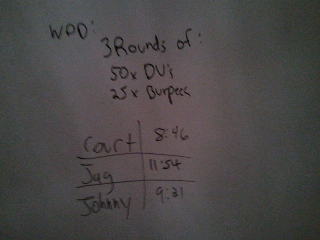 WOD:
3 Rounds of:
50x DU's
25x Burpees
Court 8:46
Jag 11:54
Johnny 9:21